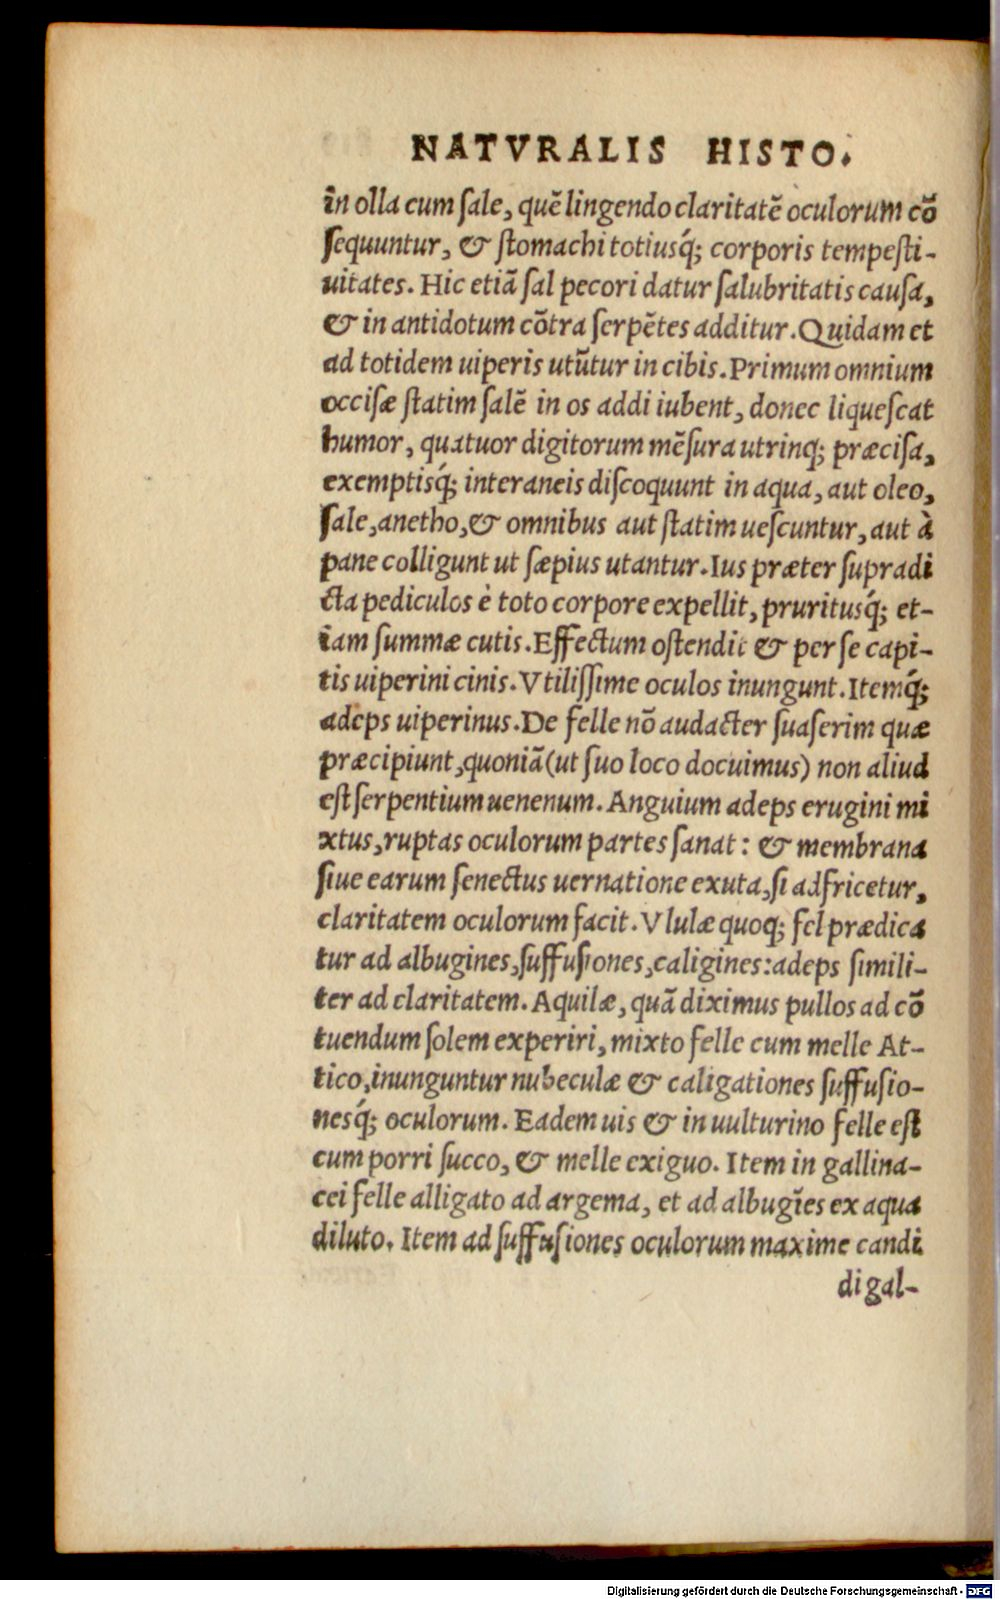 NATVRALIS HISTO.
in olla cum ſale, quẽ lingendo claritatẽ oculorum cõ
ſequuntur, & ſtomachi totiusq́; corporis tempeſti-
uitates. Hic etiã ſal pecori datur ſalubritatis cauſa,
& in antidotum cõtra ſerpẽtes additur. Quidam et
ad totidem uiperis utũtur in cibis. Primum omnium
occiſæ ſtatim ſalẽ in os addi iubent, donec liqueſcat
humor, quatuor digitorum mẽſura utrinq; præciſa,
exemptisq́; interaneis diſcoquunt in aqua, aut oleo,
ſale, anetho, & omnibus aut ſtatim ueſcuntur, aut à
pane colligunt ut ſæpius utantur. Ius præter ſupradi
cta pediculos è toto corpore expellit, pruritusq́; et-
iam ſummæ cutis. Effectum oſtendit & per ſe capi-
tis uiperini cinis. Vtiliſſime oculos inungunt. Itemq́;
adeps uiperinus. De felle nõ audacter ſuaſerim quæ
præcipiunt, quoniã (ut ſuo loco docuimus) non aliud
eſt ſerpentium uenenum. Anguium adeps erugini mi
xtus, ruptas oculorum partes ſanat: & membrana
ſiue earum ſenectus uernatione exuta, ſi adfricetur,
claritatem oculorum facit. Vlulæ quoq; fel prædica
tur ad albugines, ſuffuſiones, caligines: adeps ſimili-
ter ad claritatem. Aquilæ, quã diximus pullos ad cõ
tuendum ſolem experiri, mixto felle cum melle At-
tico, inunguntur nubeculæ & caligationes ſuffuſio-
nesq́; oculorum. Eadem uis & in uulturino felle eſt
cum porri ſucco, & melle exiguo. Item in gallina-
cei felle alligato ad argema, et ad albugĩes ex aqua
diluto. Item ad ſuffuſiones oculorum maxime candi
di gal-
Digitalisierung gefördert durch die Deutsche Forschungsgemeinschaft - DFG